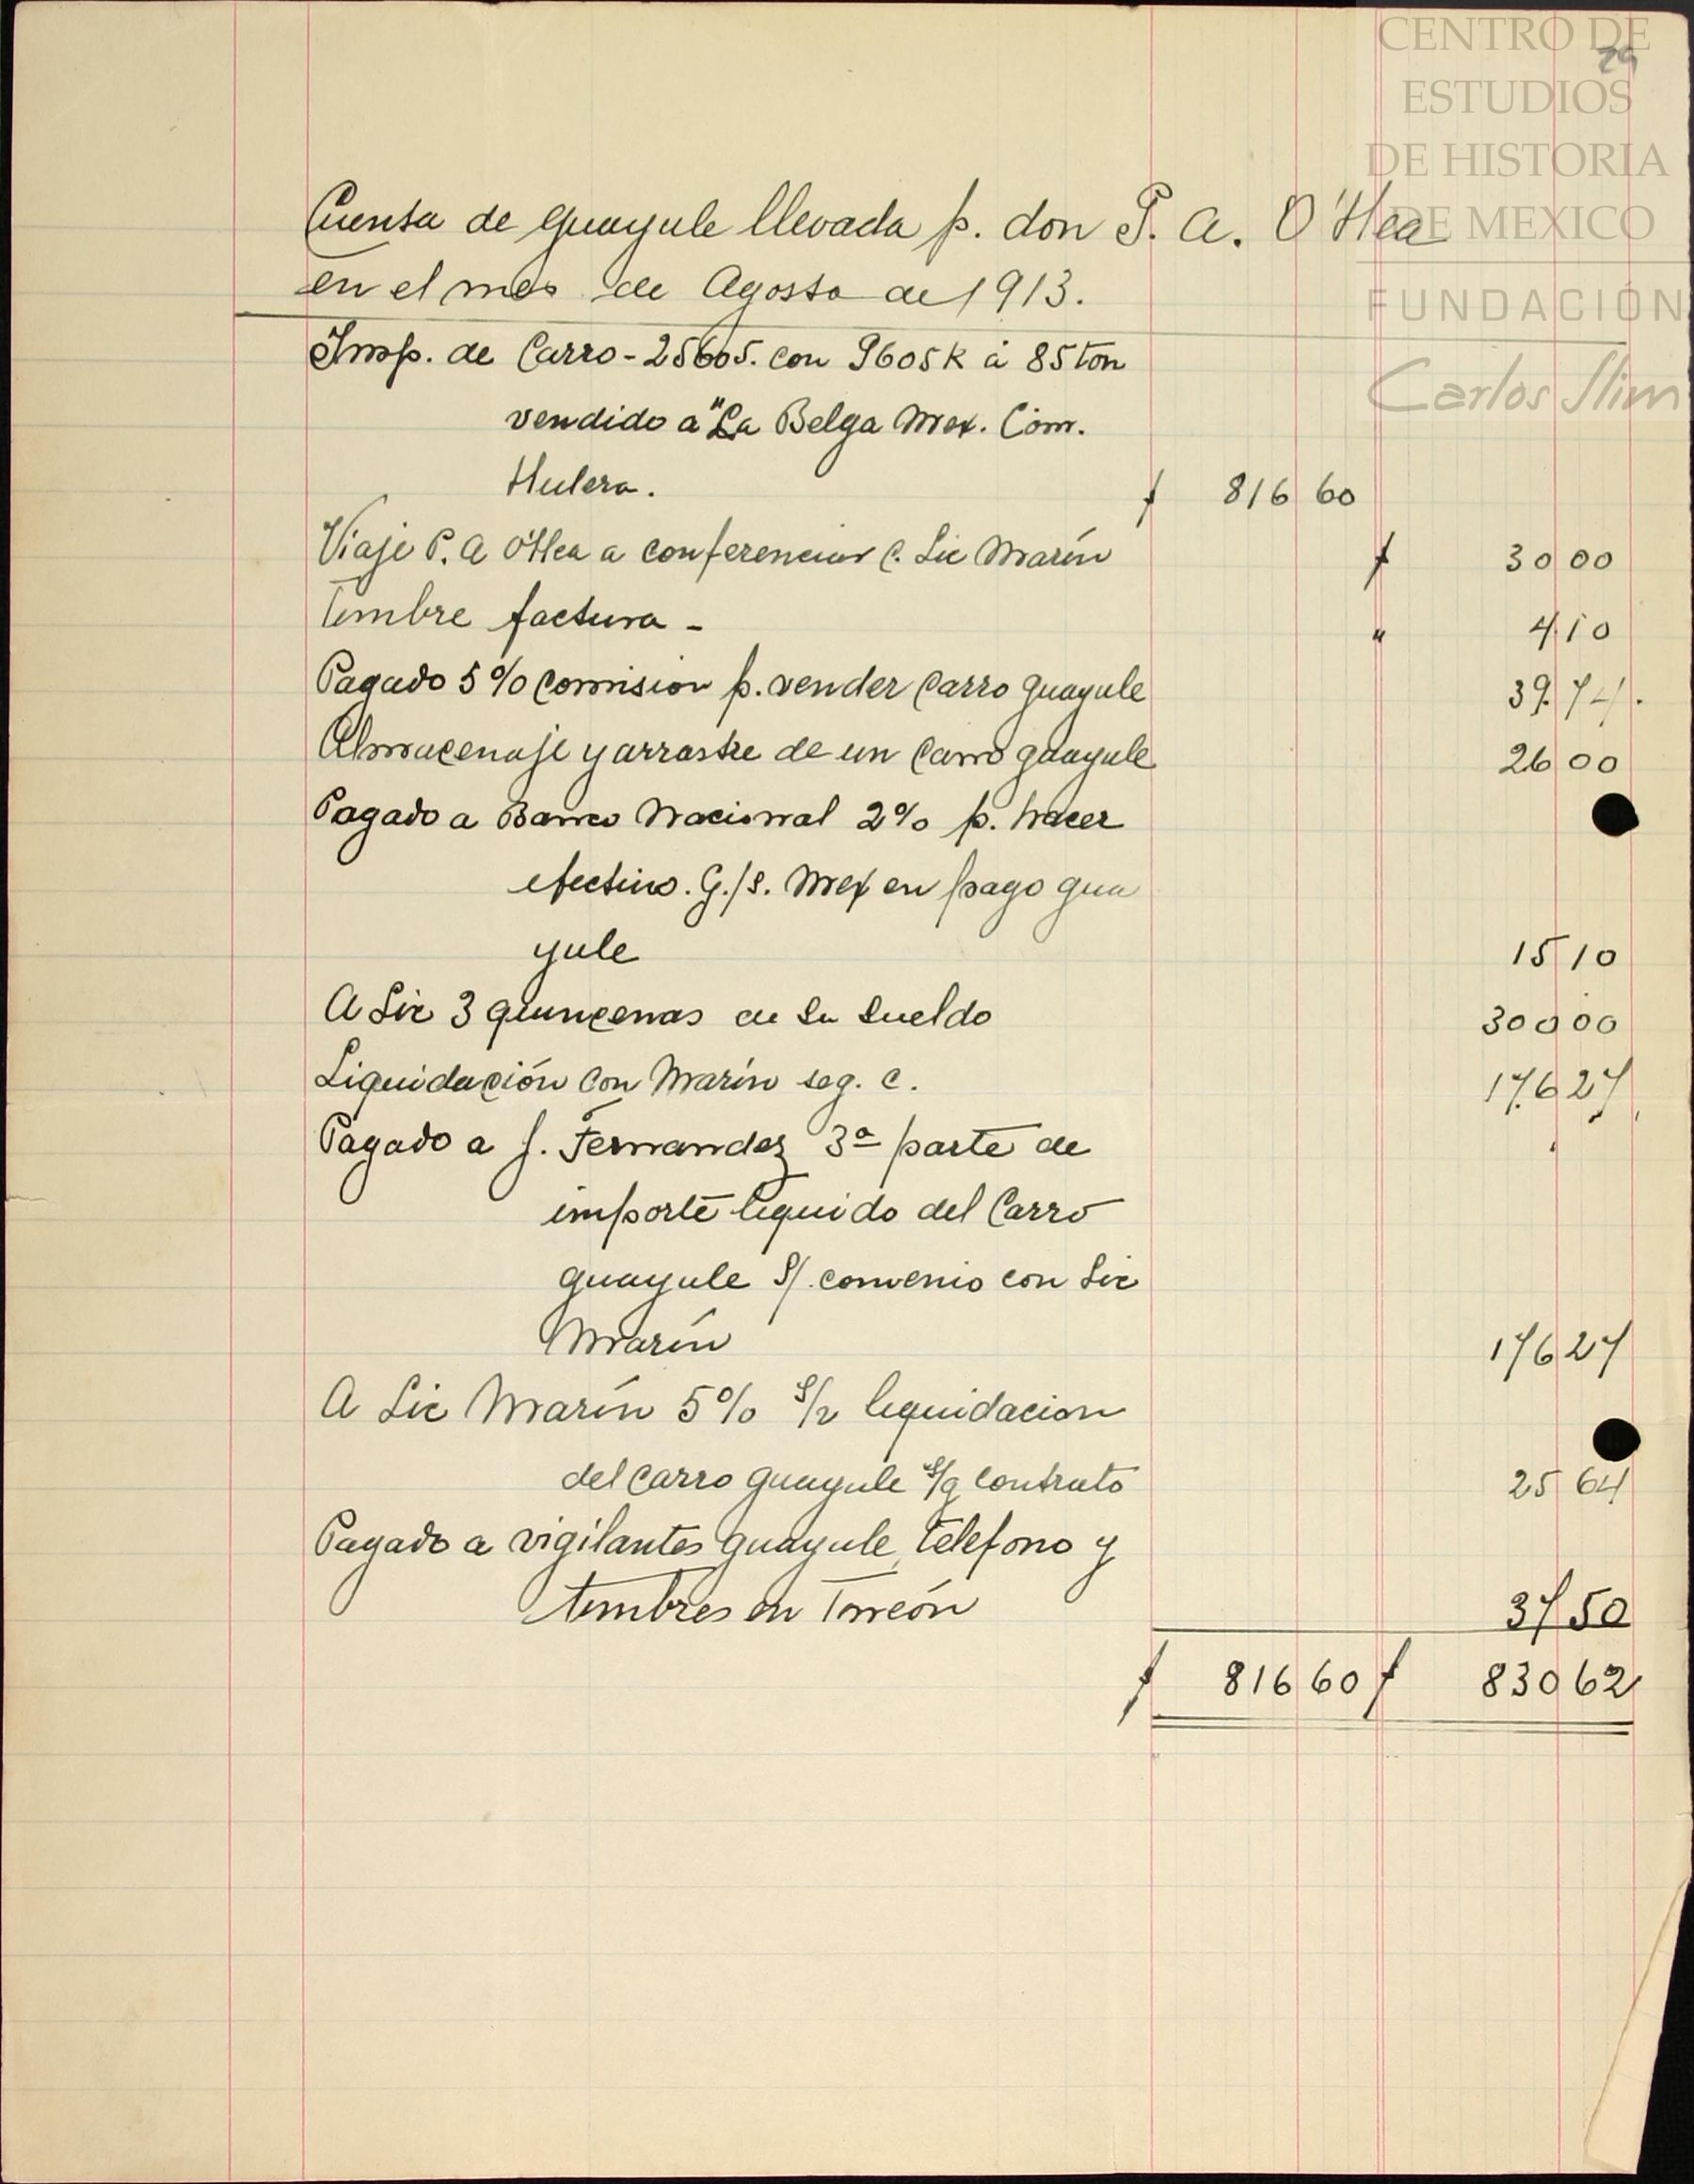 CENTRO DE
ESTUDIOS
DE HISTORIA
DE MEXICO
FUNDACIÓN
Carlos Slim
29
Cuenta de guayule llevada p. don P. A. O'Hea
en el mes de Agosto de 1913.
Imp. de Carro - 25605. con 9605 K á 85 ton
vendido a "La Belga Mex. Com.
Hulera. $ 816 60
Viaje P. A O'Hea a conferenciar c. Lic Marín $ 30 00
Timbre factura - " 4.10
Pagado 5% comision p. vender carro guayule 39.74.
Almacenaje y arrastre de un carro guayule 26 00
Pagado a Banco Nacional 2% p. hacer
efectivo. G./S. Mex en pago gua
yule 15 10
A Lic 3 quincenas de su sueldo 300 00
Liquidación con Marín seg. c. 176 27
Pagado a J. Fernandez 3ª parte de
importe liquido del Carro
guayule S/. convenio con Lic
Marín 176 27
A Lic Marín 5% s/ liquidacion
del carro guayule s/g contrato 25 64
Pagado a vigilantes guayule, telefono y
timbres en Torreón 37 50
$ 816 60 $ 830 62